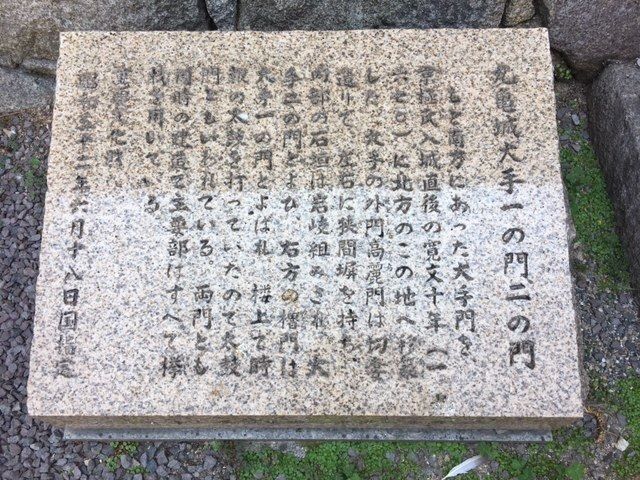 丸亀城大手一の門二の門
もと南方にあった大手門を
京極氏入城直後の寛文十年(一
六七〇)に北方のこの地へ移築
した。大手の外門高麗門は切妻
造りで、左右に狭間塀を持ち、
内部の石垣は岩岐組みされ、大
手二の門とよび、右方の櫓門は
大手一の門とよばれ、楼上で時
報の太鼓を打っていたので太鼓
門ともいわれている。両門とも
同時の建造で主要部はすべて欅
材を用いている。
重要文化財
昭和三十二年六月十八日国指定